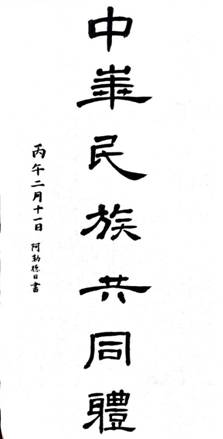 中華民族共同體
丙午二月十一日 阿勒德日書